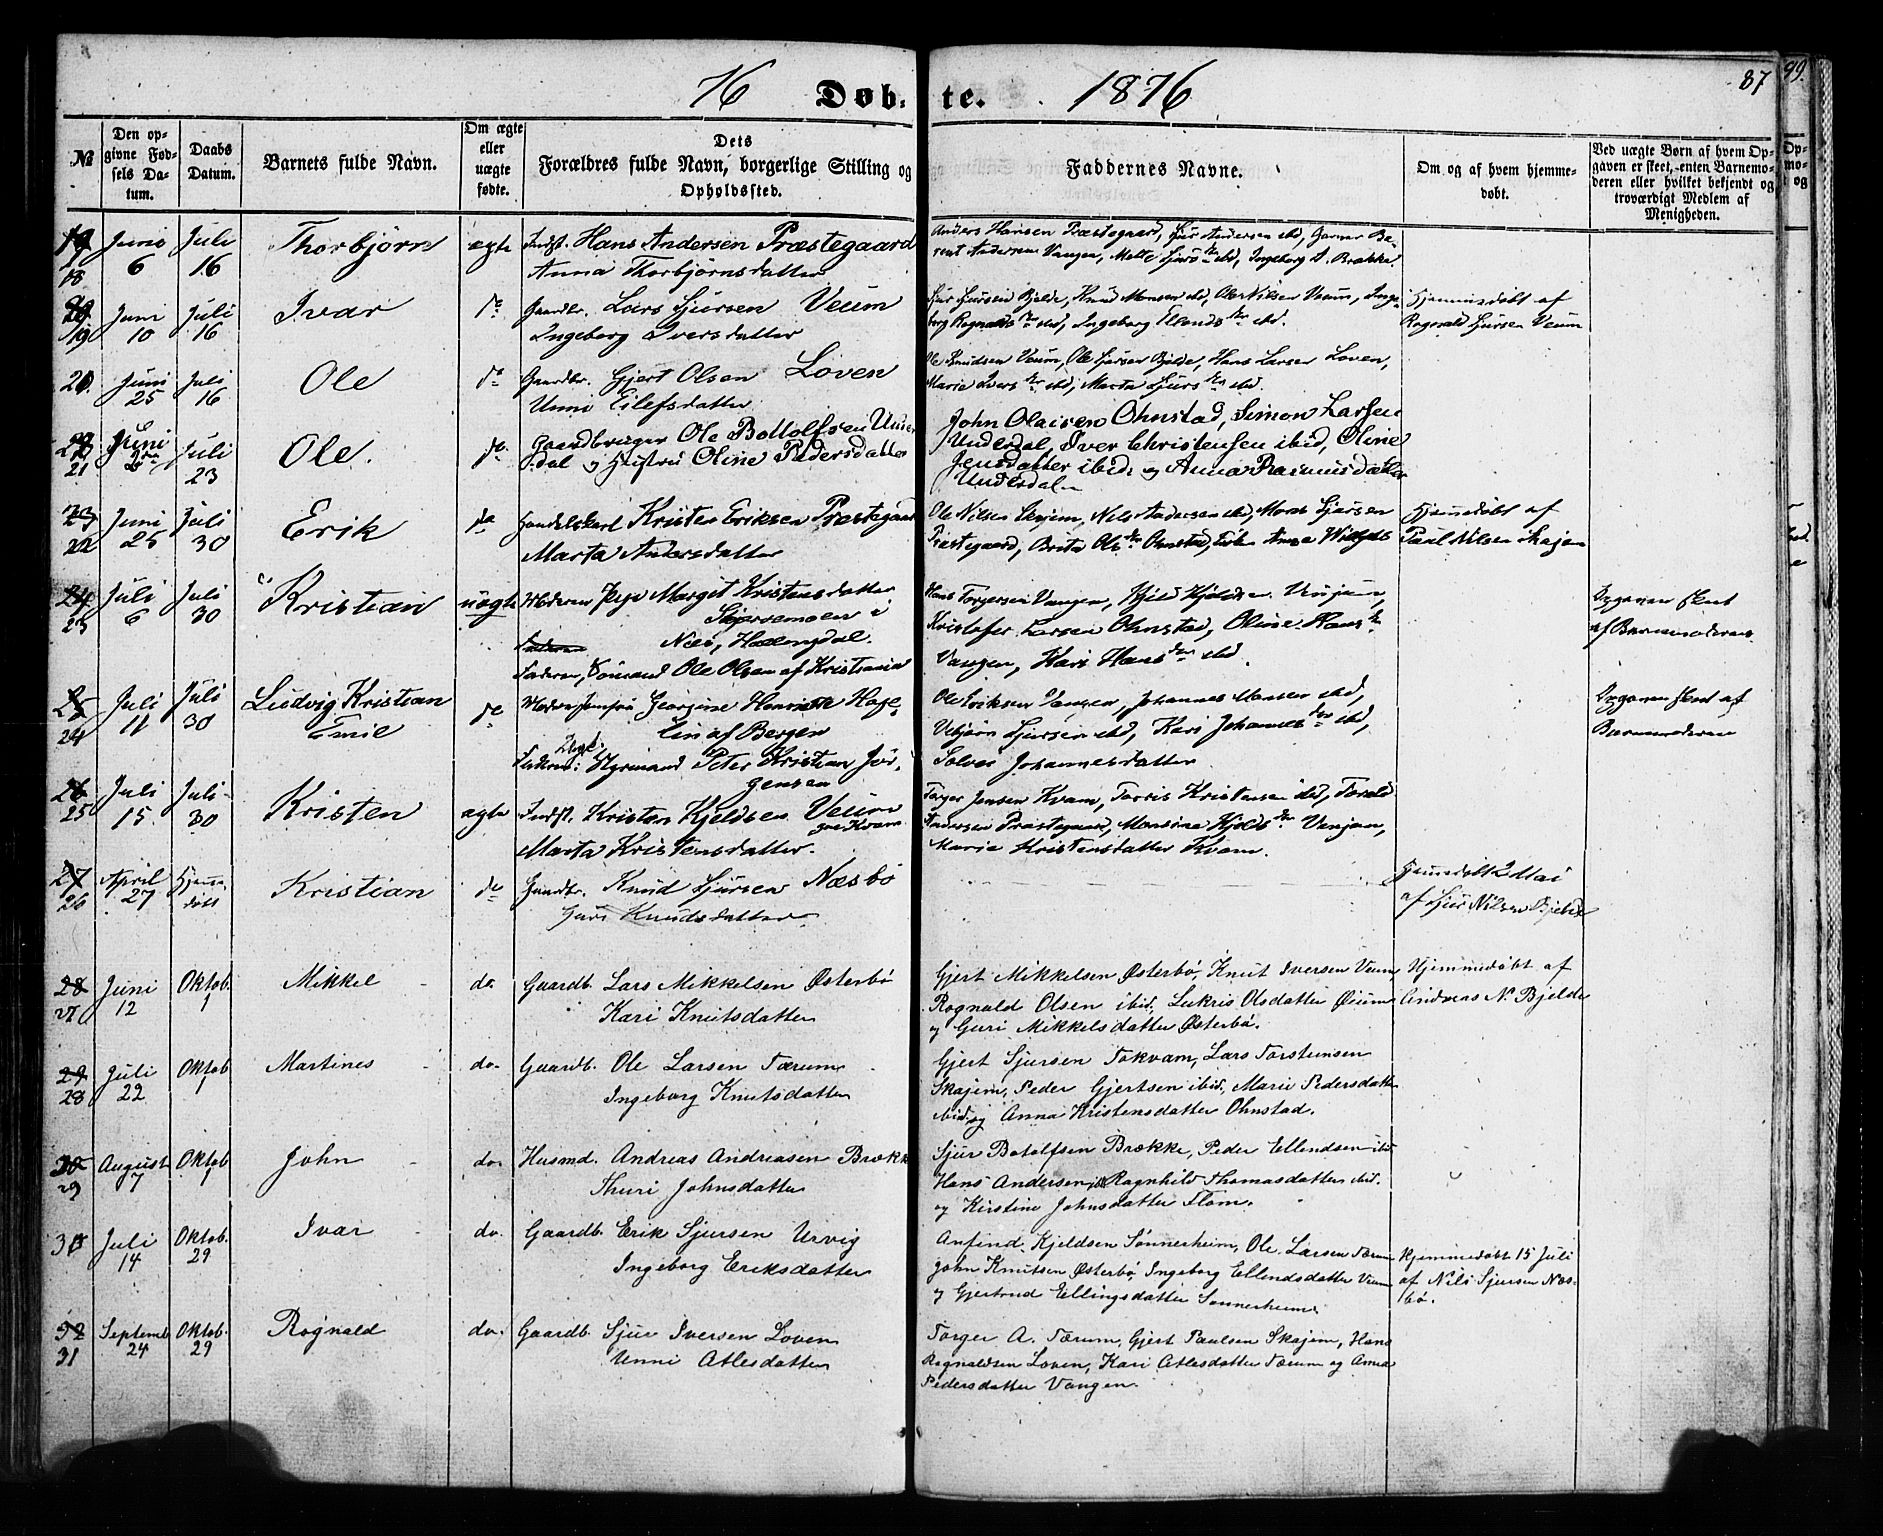 76 Døb- te. 1876 87
№
Den op-
givne Fød-
sels Da-
tum.
Daabs
Datum.
Barnets fulde Navn.
Om ægte
eller
uægte
fødte.
Dets
Forældres fulde Navn, borgerlige Stilling og
Opholdssted.
Faddernes Navne.
Om og af hvem hjemme-
døbt.
Ved uægte Børn af hvem Op-
gaven er skeet, enten Barnemo-
deren eller hvilket bekjendt og
troværdigt Medlem af
Menigheden.
18 Juni 6 Juli 16 Thorbjørn ægte Indst. Hans Andersen Præstegaard
Anna Thorbjørnsdatter
Anders Hansen Præstegaard, Sjur Andersen ibd,
Andersen Vangen, Mette Sjurs dtr ibd, Ingeborg A. Brække.
19 Juni 10 Juli 16 Ivar do Gaardbr. Lars Sjursen Veum
Ingeborg Iversdatter
Sjur Sjursen Bjelde, Knud Monsen ibd, Ole Nilsen Veum, Inge-
borg Rognalds dtr ibd, Ingeborg Ellends dtr ibd.
Hjemmedøbt af
Rognald Sjursen Veum
20. Juni 25 Juli 16 Ole do Gaardbr. Gjert Olsen Loven
Unni Eilefsdatter
Ole Knudsen Veum, Ole Sjursen Bjelde, Hans Larsen Loven,
Marie Ivers dtr ibd, Marta Sjurs dtr ibd.
21 Juni Juli 23 Ole. do. Gaardbruger Ole Bottolfsen Under-
dal og Hustru Oline Pedersdatter
John Olaisen Ohnstad, Simon Larsen
Underdal, Iver Christensen ibid, Oline
Jensdatter ibid. og Anna Rasmusdatter
Underdal.
22 Juni 25 Juli 30 Erik do Handelskarl Kristen Eriksen Præstegaard
Marta Andersdatter
Ole Nilsen Skajem, Nils Andersen ibd, Mons Sjursen
Præstegaard, Brita Ols dtr Ohnstad, Anna
Hjemmedøbt af
Paul Nilsen Skajem
23 Juli 6 Juli 30 Kristian uægte Moderen Pige Marget Kristensdatter
i
Næs, Hallingdal.
Faderen
Faderen, Sømand Ole Olsen af Kristiania
Hans Torgersen Vangen, Kjeldsen Vinjum,
Kristofer Larsen Ohnstad, Oline Hans dtr
Vangen, Kari Hans dtr ibd.
Opgaven skeet
af Barnemoderen
24 Juli 11 Juli 30 Ludvig Kristian
Emil do Moder Jomfru Georgine Henriette Hage-
lin af Bergen
Faderen: Styrmand Peter Kristian Jør-
gensen
Ole Eriksen Vangen, Johannes Monsen ibd,
Vebjørn Sjursen ibd, Kari Johannes dtr ibd,
Solvei Johannesdatter
Opgaven skeet af
Barnemoderen
25 Juli 15 Juli 30 Kristen ægte Indst. Kristen Kjeldsen Veum
Marta Kristensdatter.
Torger Jensen Kvam, Torris Kristensen ibd, Torald
Andersen Præstegaard, Monsine Kjelds dtr Vinjum,
Marie Kristensdatter Kvam.
26 April 27 Hjemme-
døbt Kristian do Gaardbr. Knud Sjursen Næsbø
Guri Knudsdatter
Hjemmedøbt 2 Mai
af Sjur Nilsen Bjelde
28
27 Juni 12 Oktob. 1 Mikkel do. Gaardb. Lars Mikkelsen Østerbø
Kari Knutsdatter
Gjert Mikkelsen Østerbø, Knut Iversen Veum
Rognald Olsen ibid., Lukris Olsdatter Øium
og Guri Mikkelsdatter Østerbø.
Hjemmedøbt af
Andreas N. Bjelde
29
28 Juli 22 Oktob. 1 Martines do. Gaardb. Ole Larsen Tærum
Ingeborg Knutsdatter
Gjert Sjursen Tokvam, Lars Torsteinsen
Skajem, Peder Gjertsen ibid., Marie Pedersdatter
ibid. og Anna Kristensdatter Ohnstad.
30
29 August 7 Oktob. 1 John do. Husmd. Andreas Andreasen Brække
Thuri Johnsdatter
Sjur Botolfsen Brække, Peder Ellendsen ibid
Hans Andersen ibd Ragnhild Thomasdatter ibid.
og Kirstine Johnsdatter Flom.
30 Juli 14 Oktob. 29 Ivar do. Gaardb. Erik Sjursen Urvig
Ingeborg Eriksdatter
Anfind Kjeldsen Sønnerheim, Ole Larsen Tærum
John Knutsen Østerbø, Ingeborg Ellendsdatter Veum
og Gjertrud Ellingsdatter Sønnerheim.
Hjemmedøbt 15 Juli
af Nils Sjursen Næs-
bø.
32
31 Septemb. 24 Oktob. 29 Rognald do. Gaardb. Sjur Iversen Loven
Unni Atlesdatter
Torger A. Tærum, Gjert Paulsen Skajem, Hans
Rognaldsen Loven, Kari Atlesdatter Tærum og Anna
Pedersdatter Vangen.